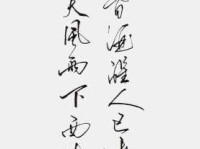 暮酒醒人已
天風雨下西